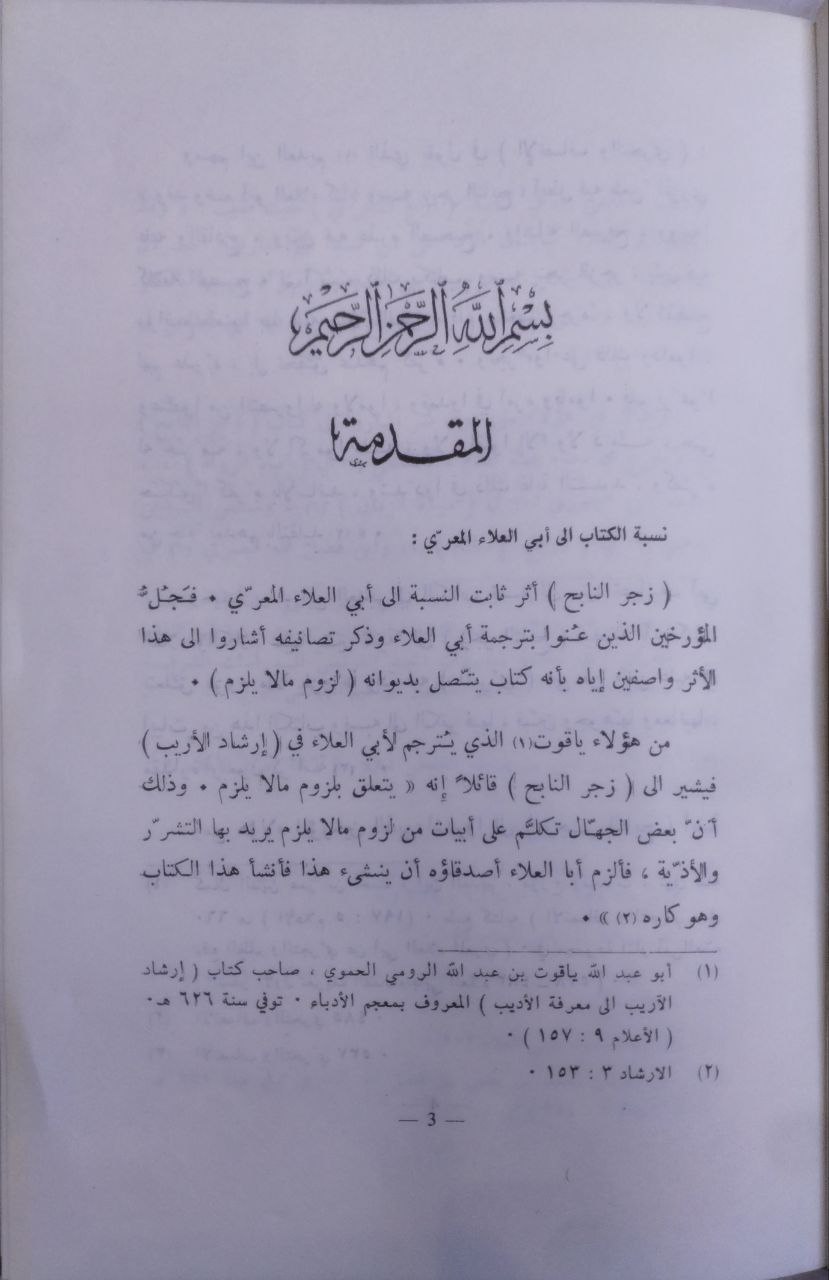 بِسْمِ ٱللَّهِ ٱلرَّحْمَٰنِ ٱلرَّحِيمِ
المقدمة
نسبة الكتاب الى أبي العلاء المعرّي :
( زجر النابح ) أثر ثابت النسبة الى أبي العلاء المعرّي ٠ فَجُلُّ
المؤرخين الذين عُنوا بترجمة أبي العلاء وذكر تصانيفه أشاروا الى هذا
الأثر واصفين إياه بأنه كتاب يتّصل بديوانه ( لزوم مالا يلزم ) ٠
من هؤلاء ياقوت(١) الذي يُترجم لأبي العلاء في ( إرشاد الأريب )
فيشير الى ( زجر النابح ) قائلاً إنه « يتعلق بلزوم مالا يلزم ٠ وذلك
أنّ بعض الجهّال تكلّم على أبيات من لزوم مالا يلزم يريد بها التشرّر
والأذيّة ، فألزم أبا العلاء أصدقاؤه أن ينشىء هذا فأنشأ هذا الكتاب
وهو كاره (٢) » ٠
(١) أبو عبد الله ياقوت بن عبد الله الرومي الحموي ، صاحب كتاب ( إرشاد
الأريب الى معرفة الأديب ) المعروف بمعجم الأدباء ٠ توفي سنة ٦٢٦ هـ٠
( الأعلام ٩ : ١٥٧ ) ٠
(٢) الارشاد ٣ : ١٥٣ ٠
— 3 —